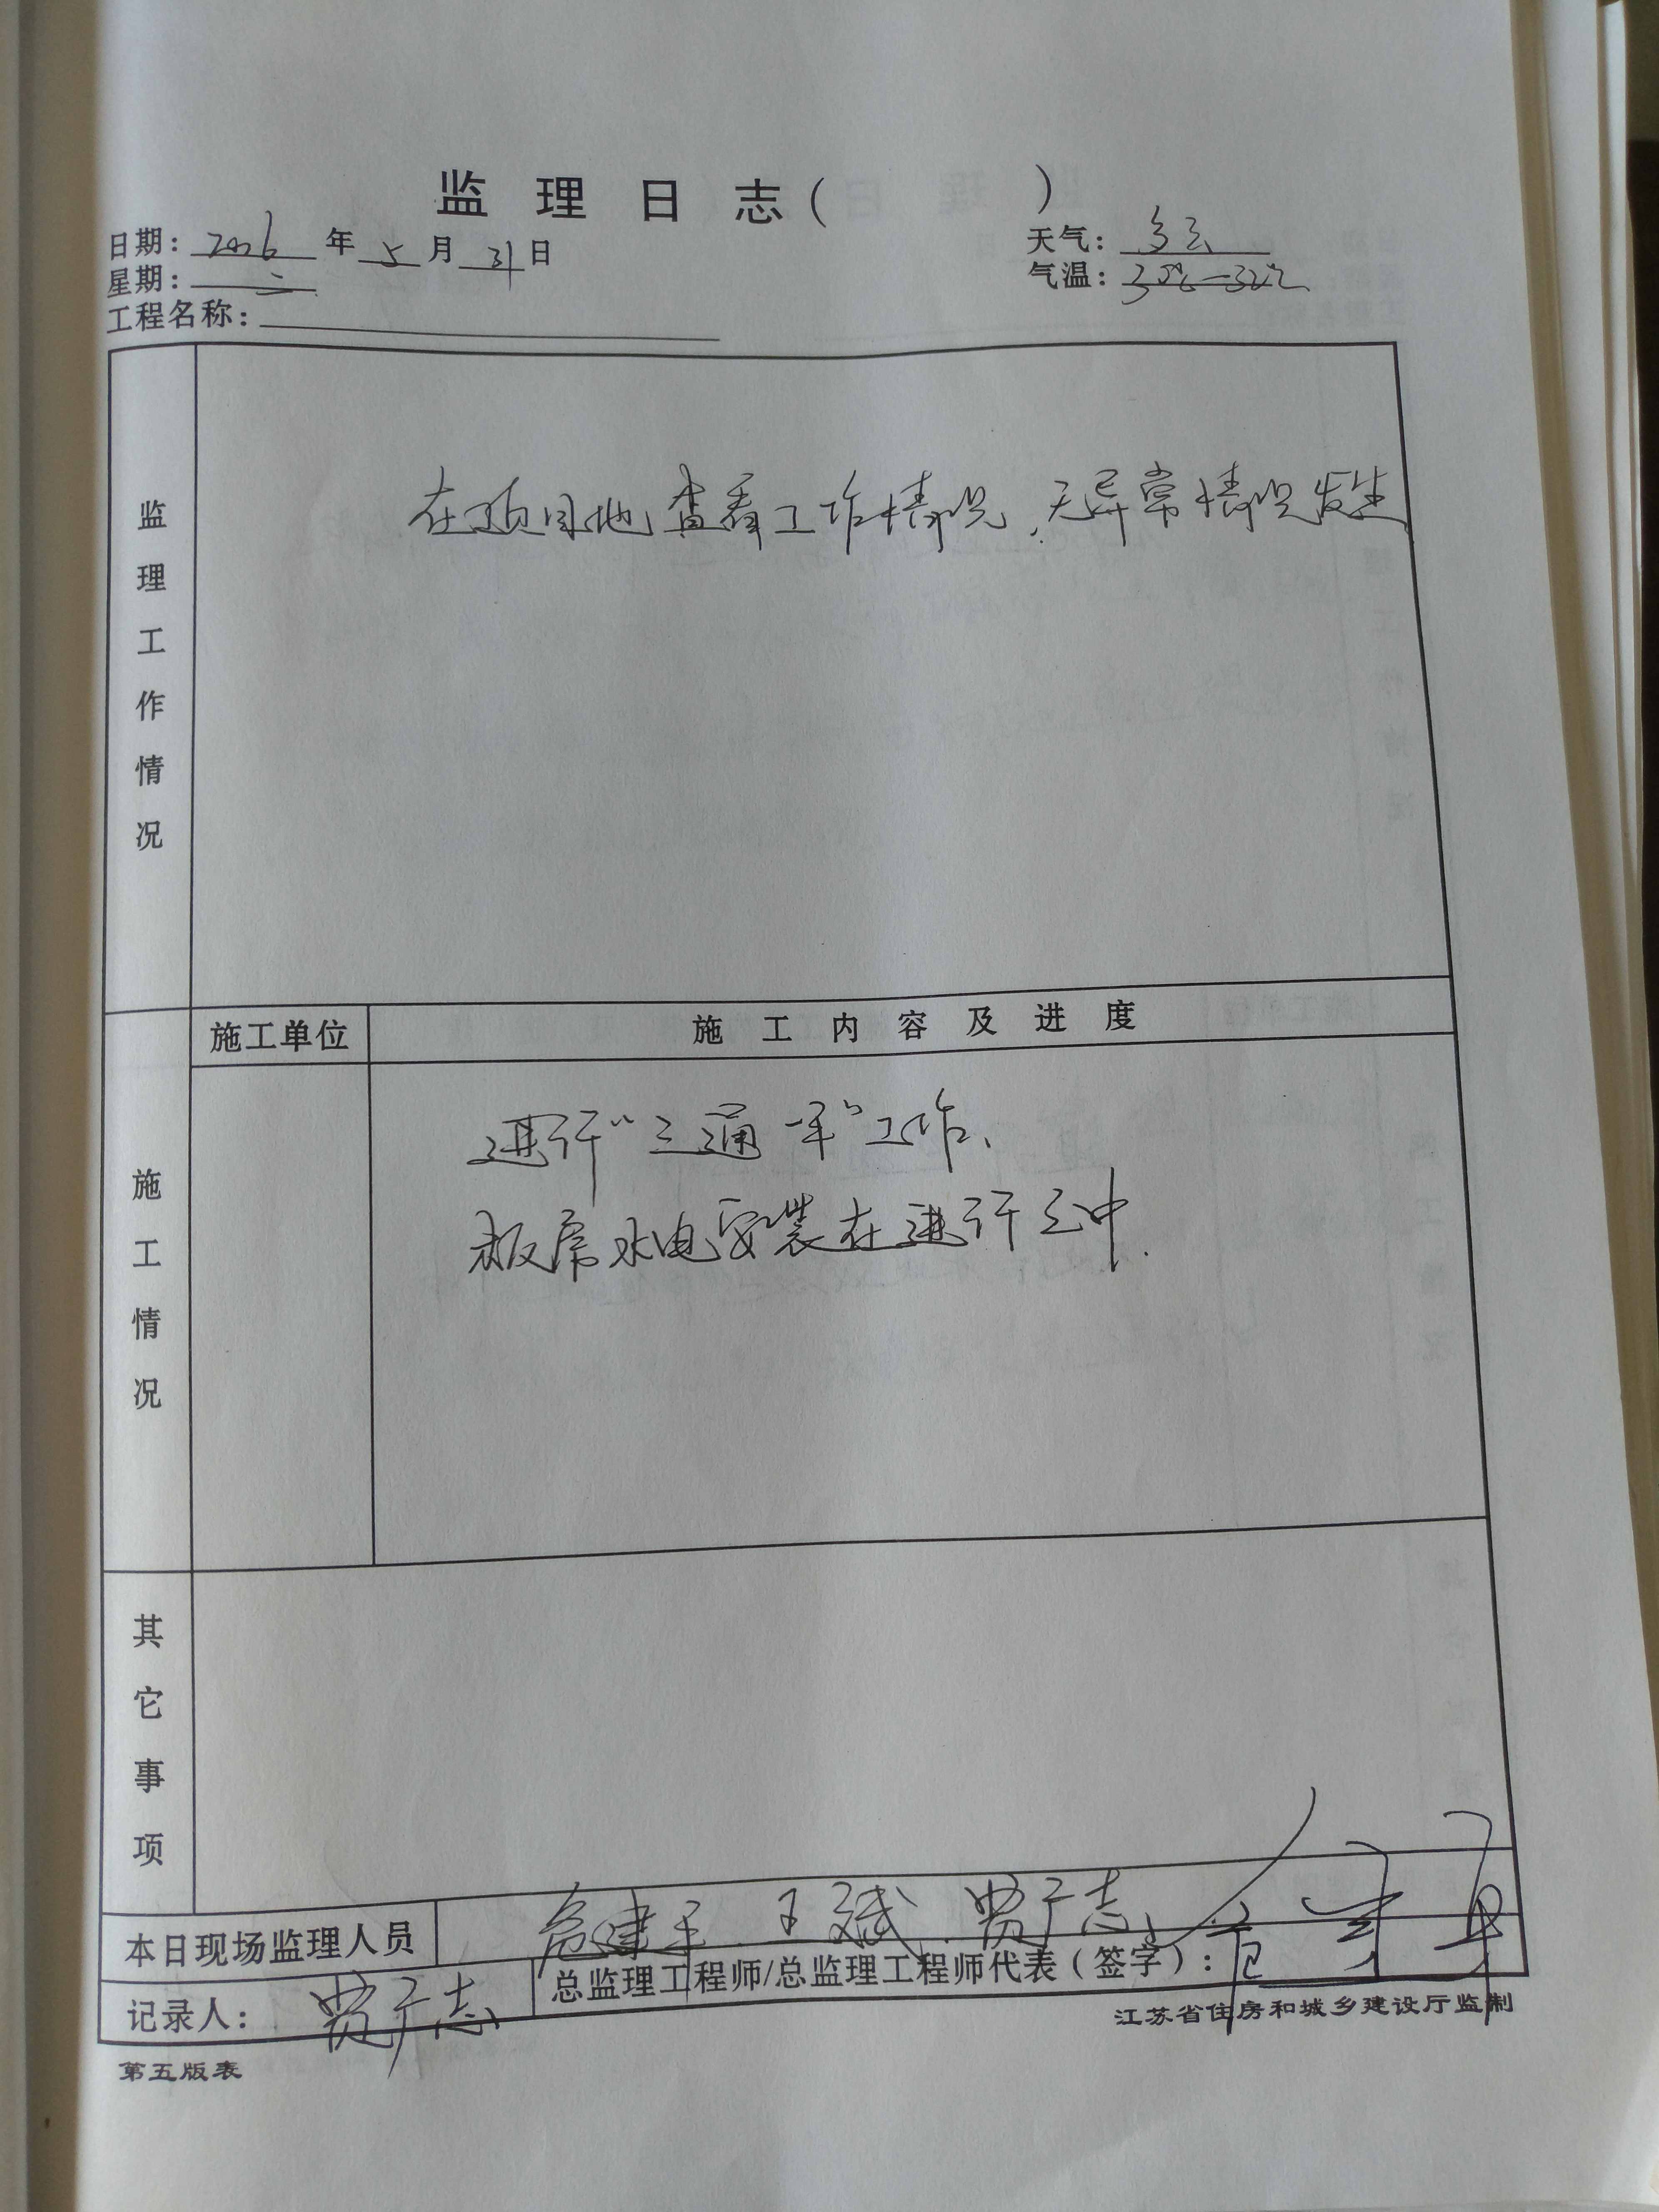 监理日志（ ）
日期：2016年5月31日 天气：多云
星期：二 气温：
工程名称：
监理工作情况
在项目地查看工作情况，无异常情况发生
施工单位 施工内容及进度
施工情况
进行“三通一平”工作、
板房水电安装在进行之中.
其它事项
本日现场监理人员 建平、王斌、贾广志
记录人：贾广志 总监理工程师/总监理工程师代表（签字）：
江苏省住房和城乡建设厅监制
第五版表